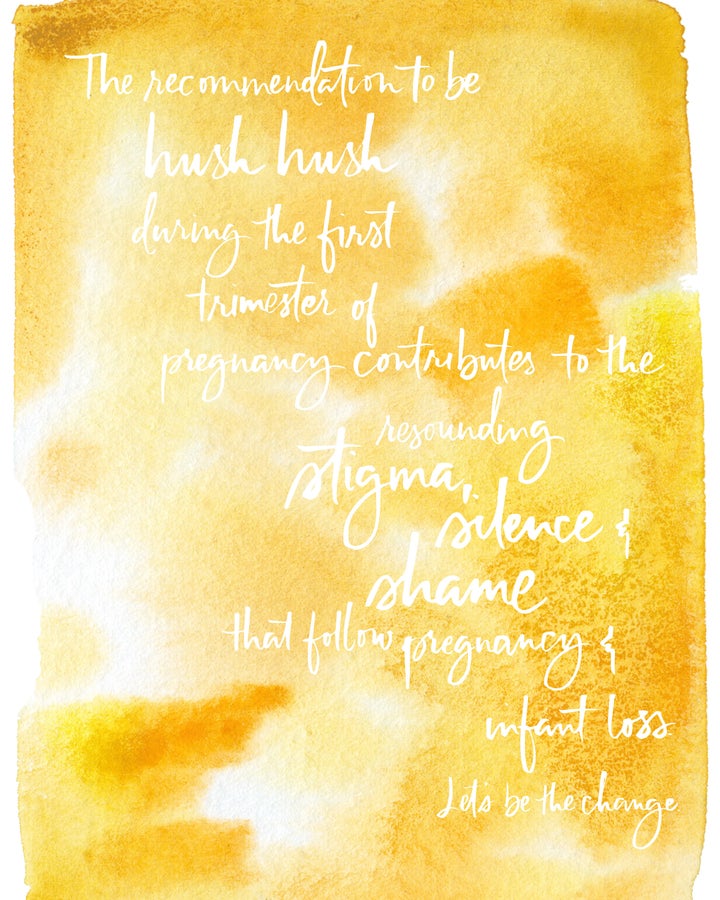 The recommendation to be
hush hush
during the first
trimester of
pregnancy contributes to the
resounding
stigma,
silence &
shame
that follow pregnancy &
infant loss
Let's be the change